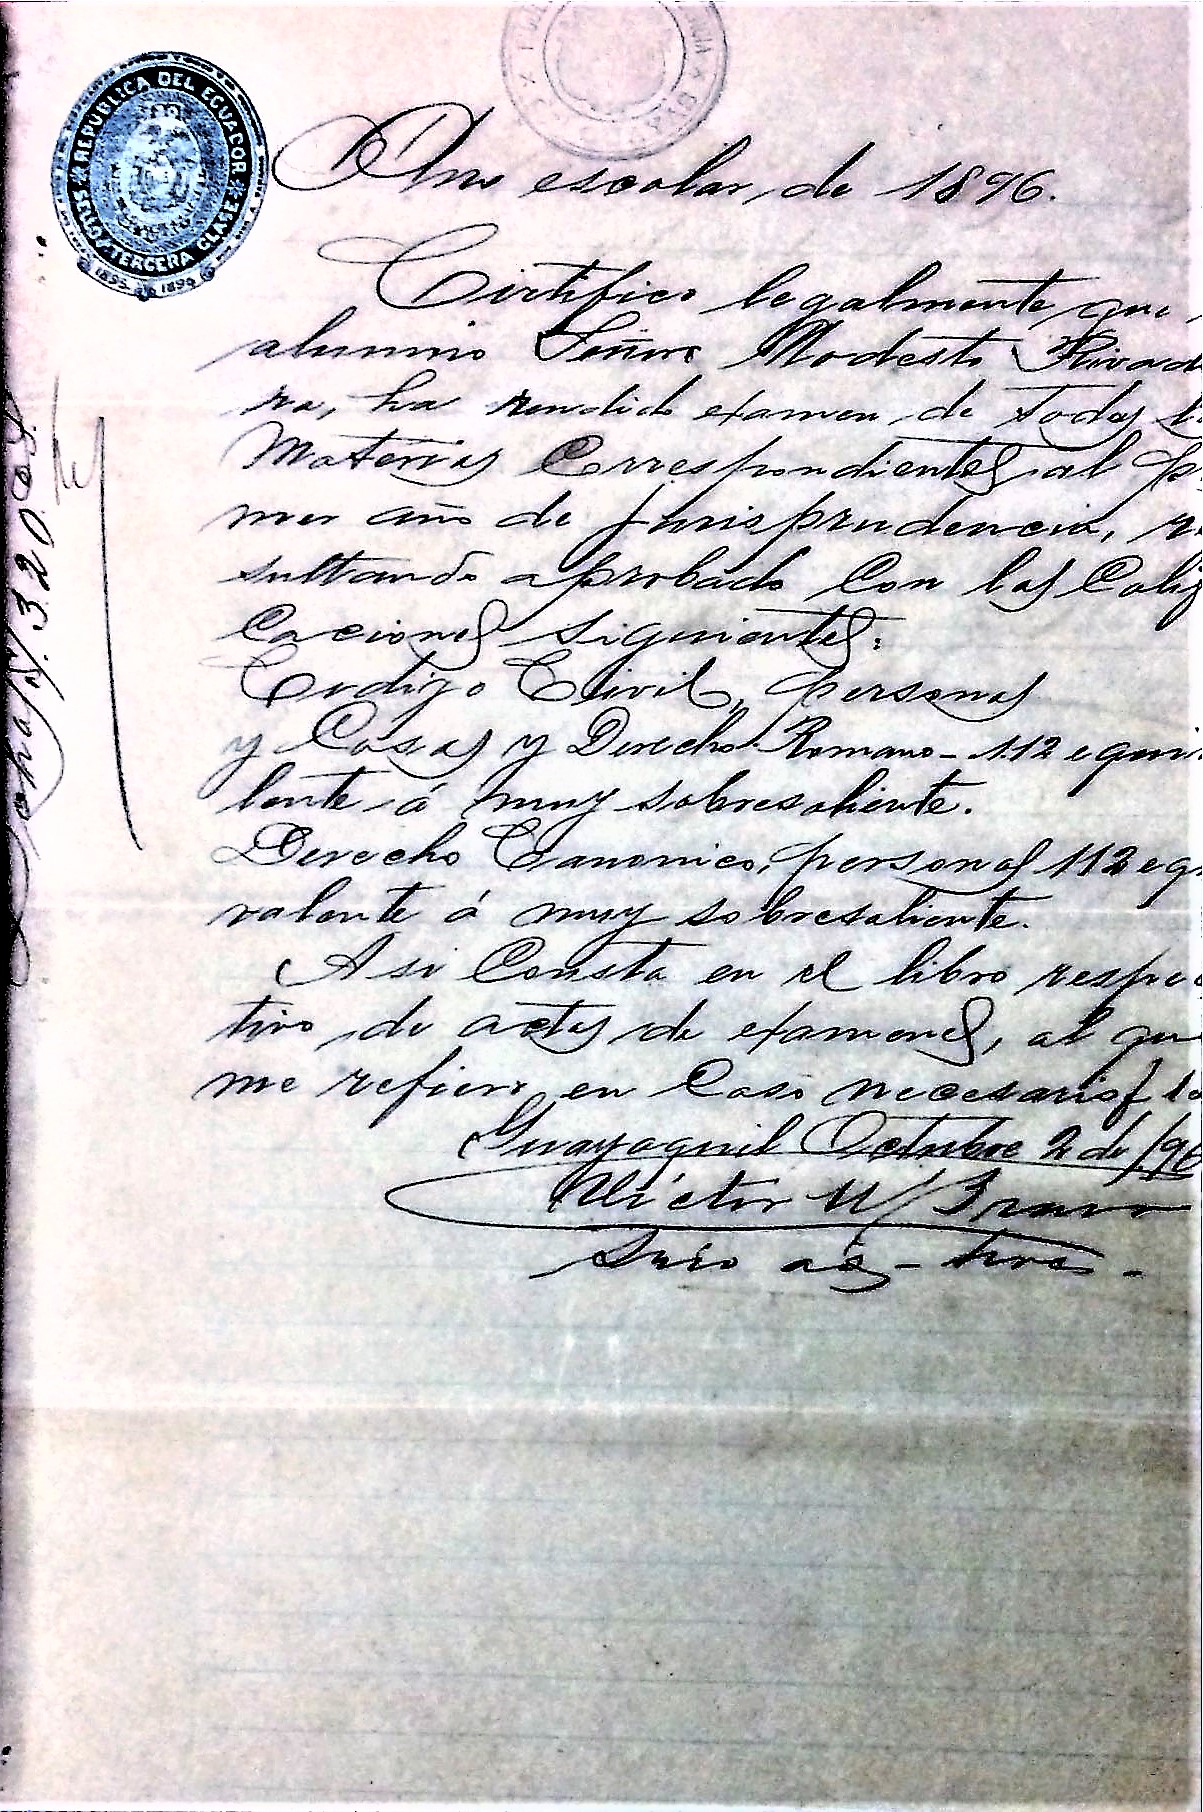 REPUBLICA DEL ECUADOR
SELLO TERCERA CLASE
1895 1896
Año escolar, de 1896.
Certifico legalmente que
alumno Señor Modesto Rivade
ra, ha rendido examen de todas la
Materias Correspondientes al pr
mer año de jurisprudencia, re
sultando aprobado Con las Calif
caciones siguientes:
Codigo Civil, personas
y Cosas y Derecho Romano - 112 equiv
lente á muy sobresaliente.
Derecho Canonico, personas 112 equ
valente á muy sobresaliente.
Asi Consta en el libro respec
tivo de actas de examenes, al que
me refiero en Caso necesario
Guayaquil Octubre 2 de /96
Victor M Bravo